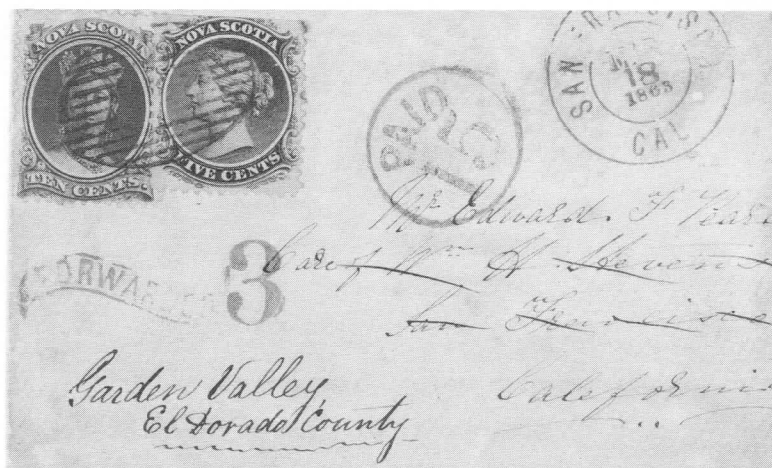 NOVA SCOTIA
TEN CENTS.
NOVA SCOTIA
FIVE CENTS
PAID
15
SAN FRANCISCO
18
1863
CAL
Mr Edward. F
Care of Wm H. Stevens
San Francisco
California
FORWARDED
3
Garden Valley,
El Dorado County